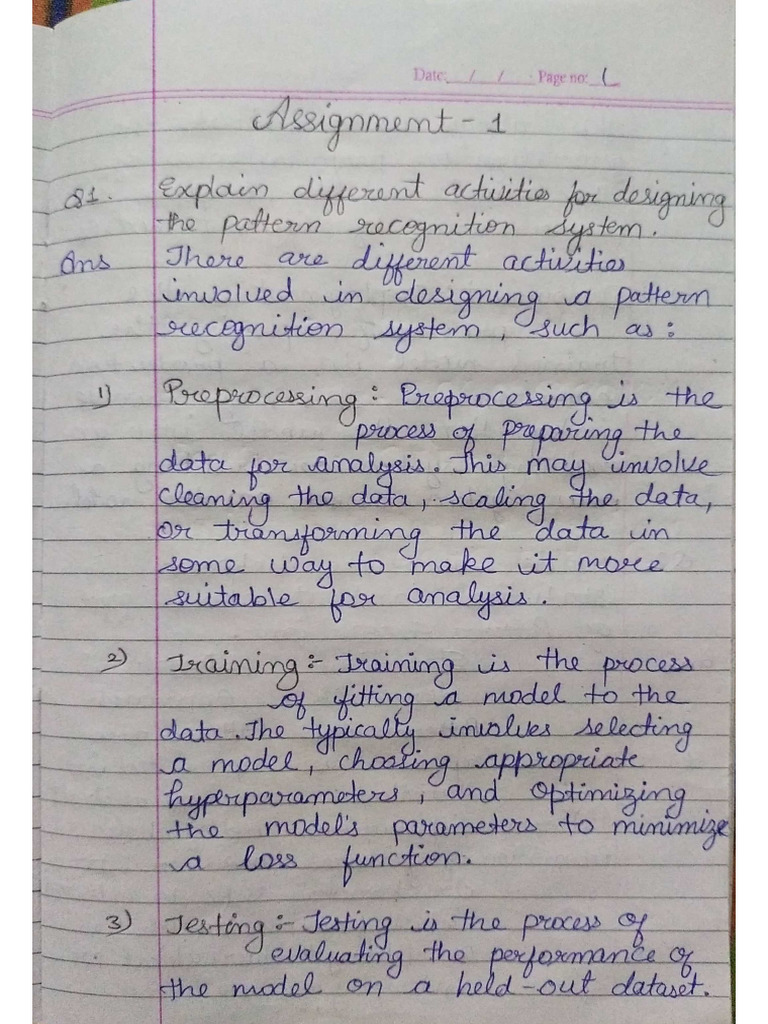 Date: / / Page no: 1
Assignment - 1
Q1. Explain different activities for designing
the pattern recognition system.
Ans There are different activities
involved in designing a pattern
recognition system, such as:
1) Preprocessing: Preprocessing is the
process of preparing the
data for analysis. This may involve
cleaning the data, scaling the data,
or transforming the data in
some way to make it more
suitable for analysis.
2) Training:- Training is the process
of fitting a model to the
data. The typically involves selecting
a model, choosing appropriate
hyperparameters, and optimizing
the model's parameters to minimize
a loss function.
3) Testing:- Testing is the process of
evaluating the performance of
the model on a held-out dataset.